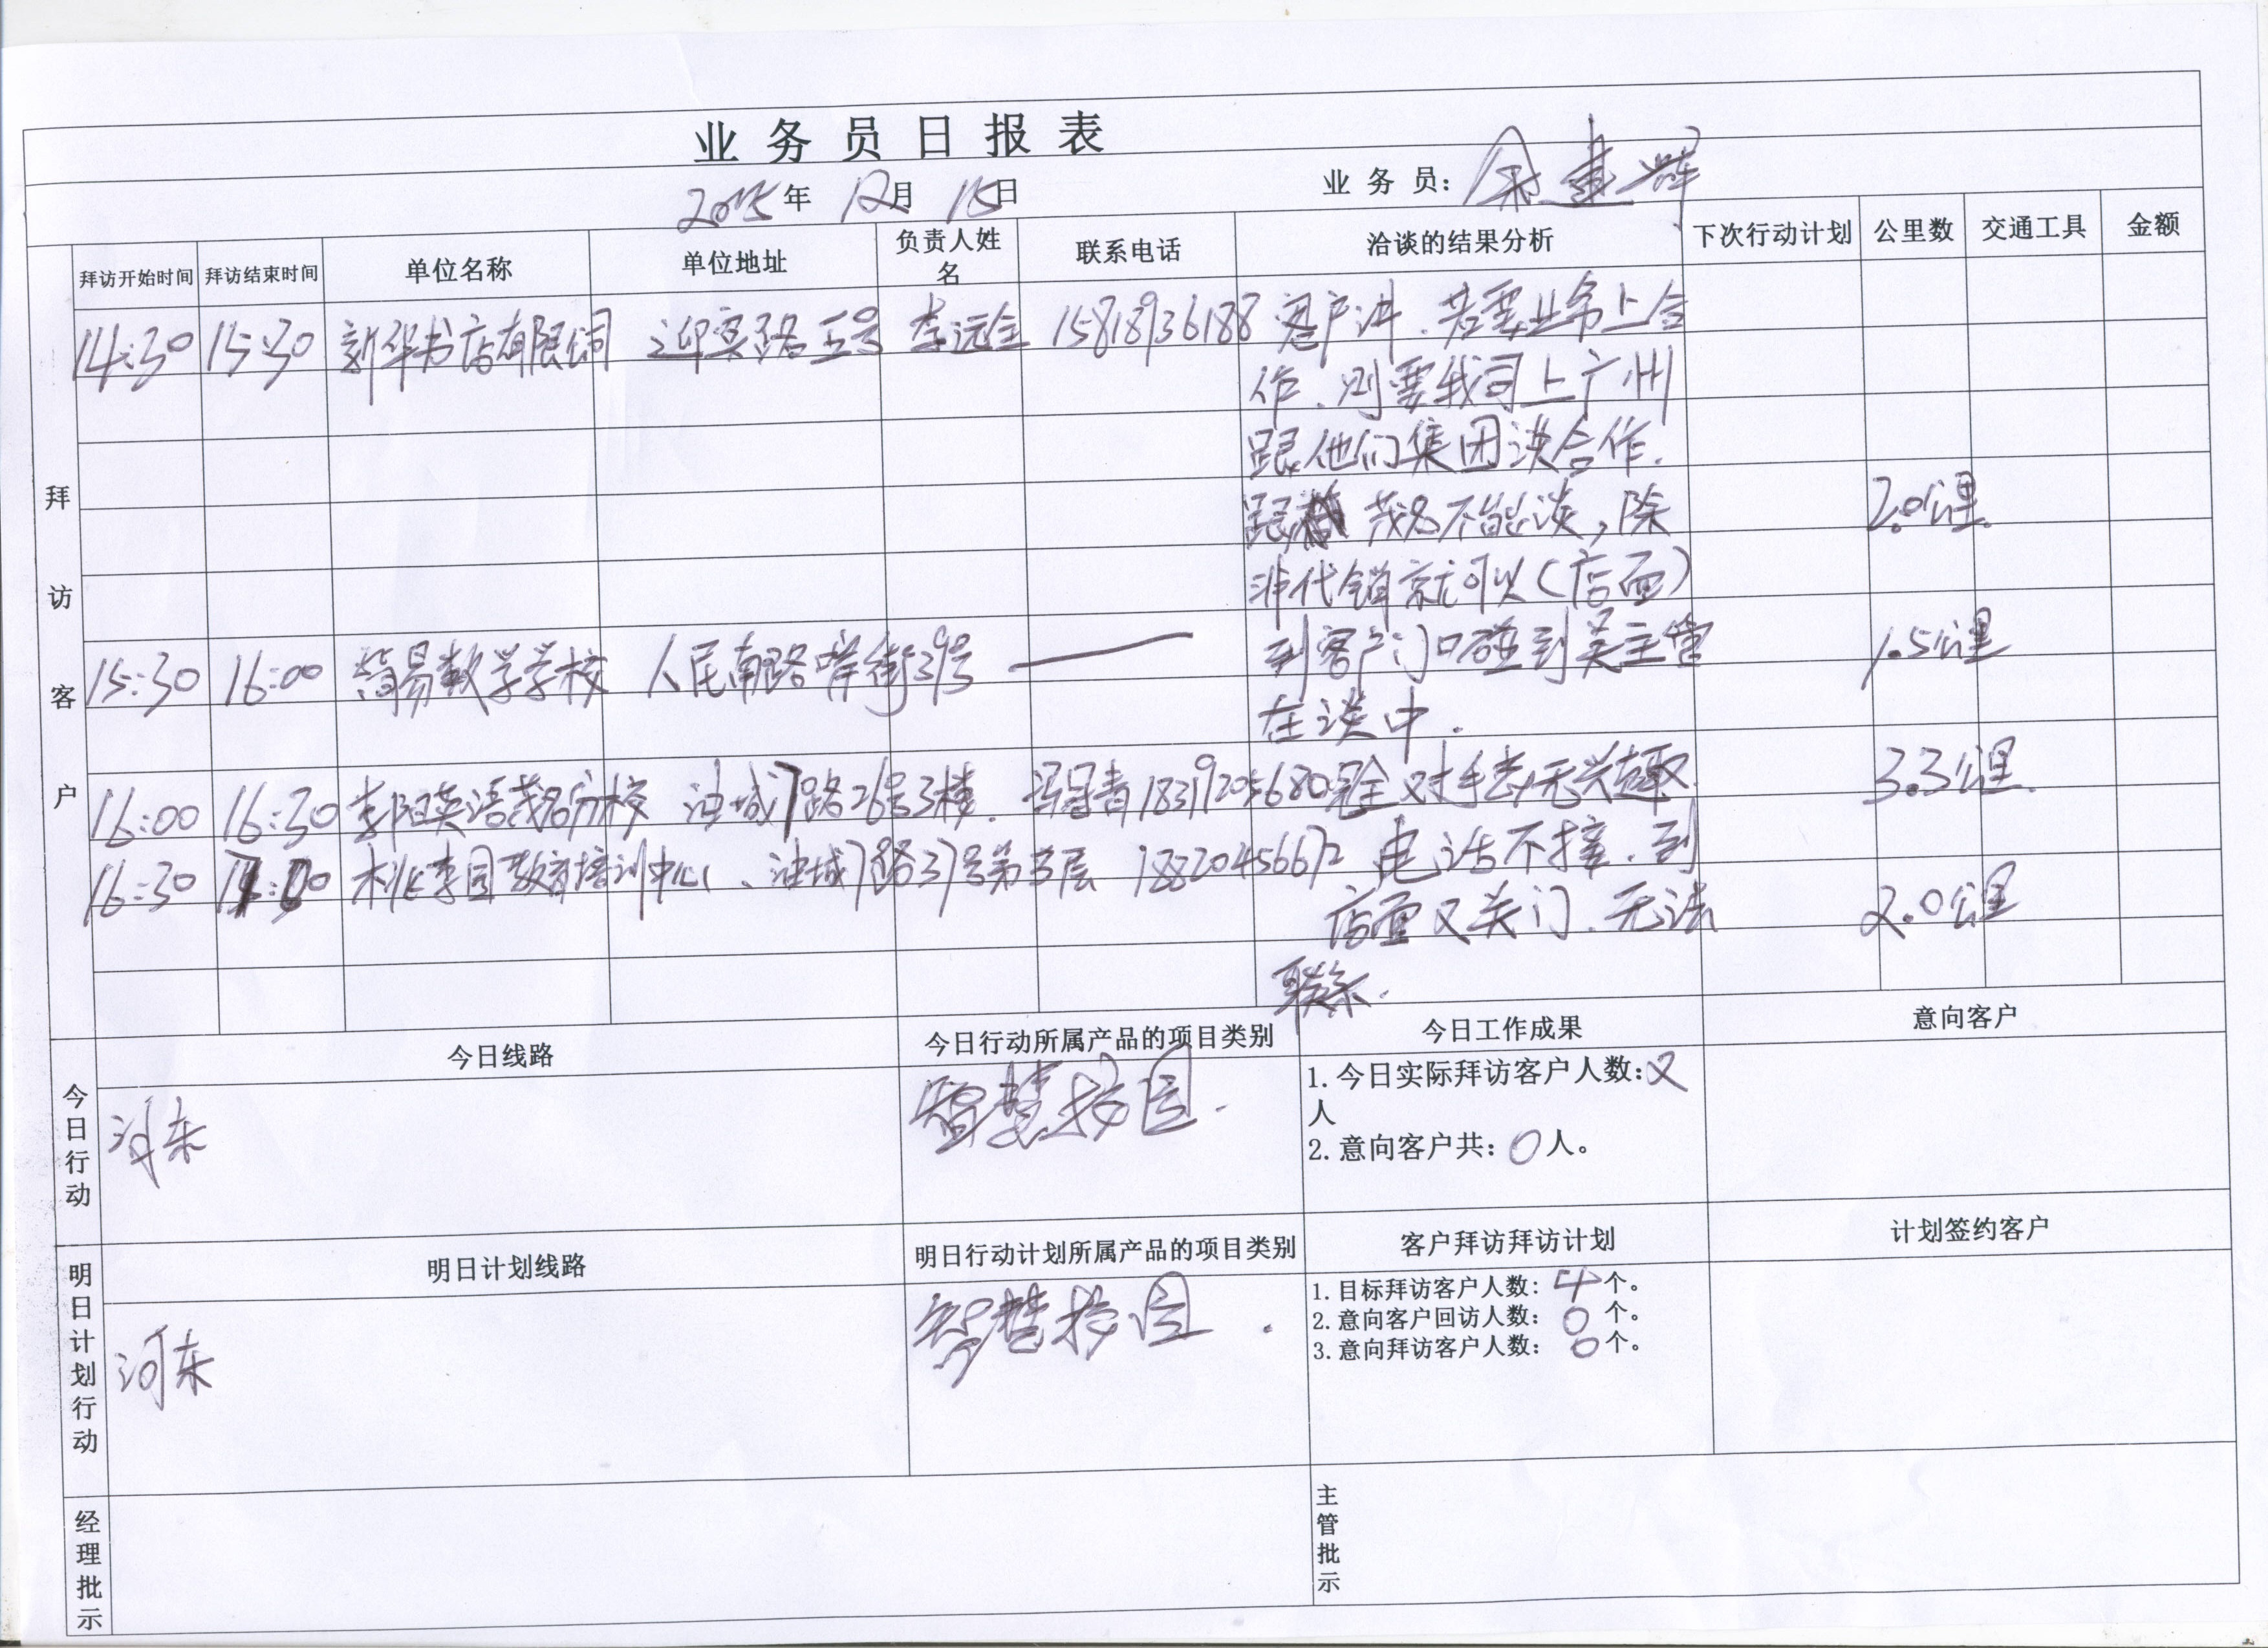 业务员日报表
2015年 12月 15日 业务员: 余建辉
拜访客户
拜访开始时间 拜访结束时间 单位名称 单位地址 负责人姓名 联系电话 洽谈的结果分析 下次行动计划 公里数 交通工具 金额
14:30 15:30 新华书店有限公司 迎宾路五号 李远全 15818936188 客户讲.若要业务上合
作.则要我司上广州
跟他们集团谈合作.
跟 茂名不能谈,除 2.0公里.
非代销就可以(店面)
15:30 16:00 简易数学学校 人民南路 街39号 — 到客户门口碰到吴主管 1.5公里
在谈中.
16:00 16:30 李阳英语茂名分校 油城7路26号3楼. 冯冠青 18319205680 完全对手机无兴趣. 3.3公里.
16:30 17:00 桃李园教育培训中心、油城7路37号第3层 18820456672 电话不接.到
店面又关门.无法 2.0公里
联系.
今日行动
今日线路 今日行动所属产品的项目类别 今日工作成果 意向客户
河东 智慧校园. 1.今日实际拜访客户人数:2
人
2.意向客户共: 0人。
明日计划行动
明日计划线路 明日行动计划所属产品的项目类别 客户拜访拜访计划 计划签约客户
河东 智慧校园. 1.目标拜访客户人数: 4个。
2.意向客户回访人数: 0个。
3.意向拜访客户人数: 0个。
经理批示 主管批示